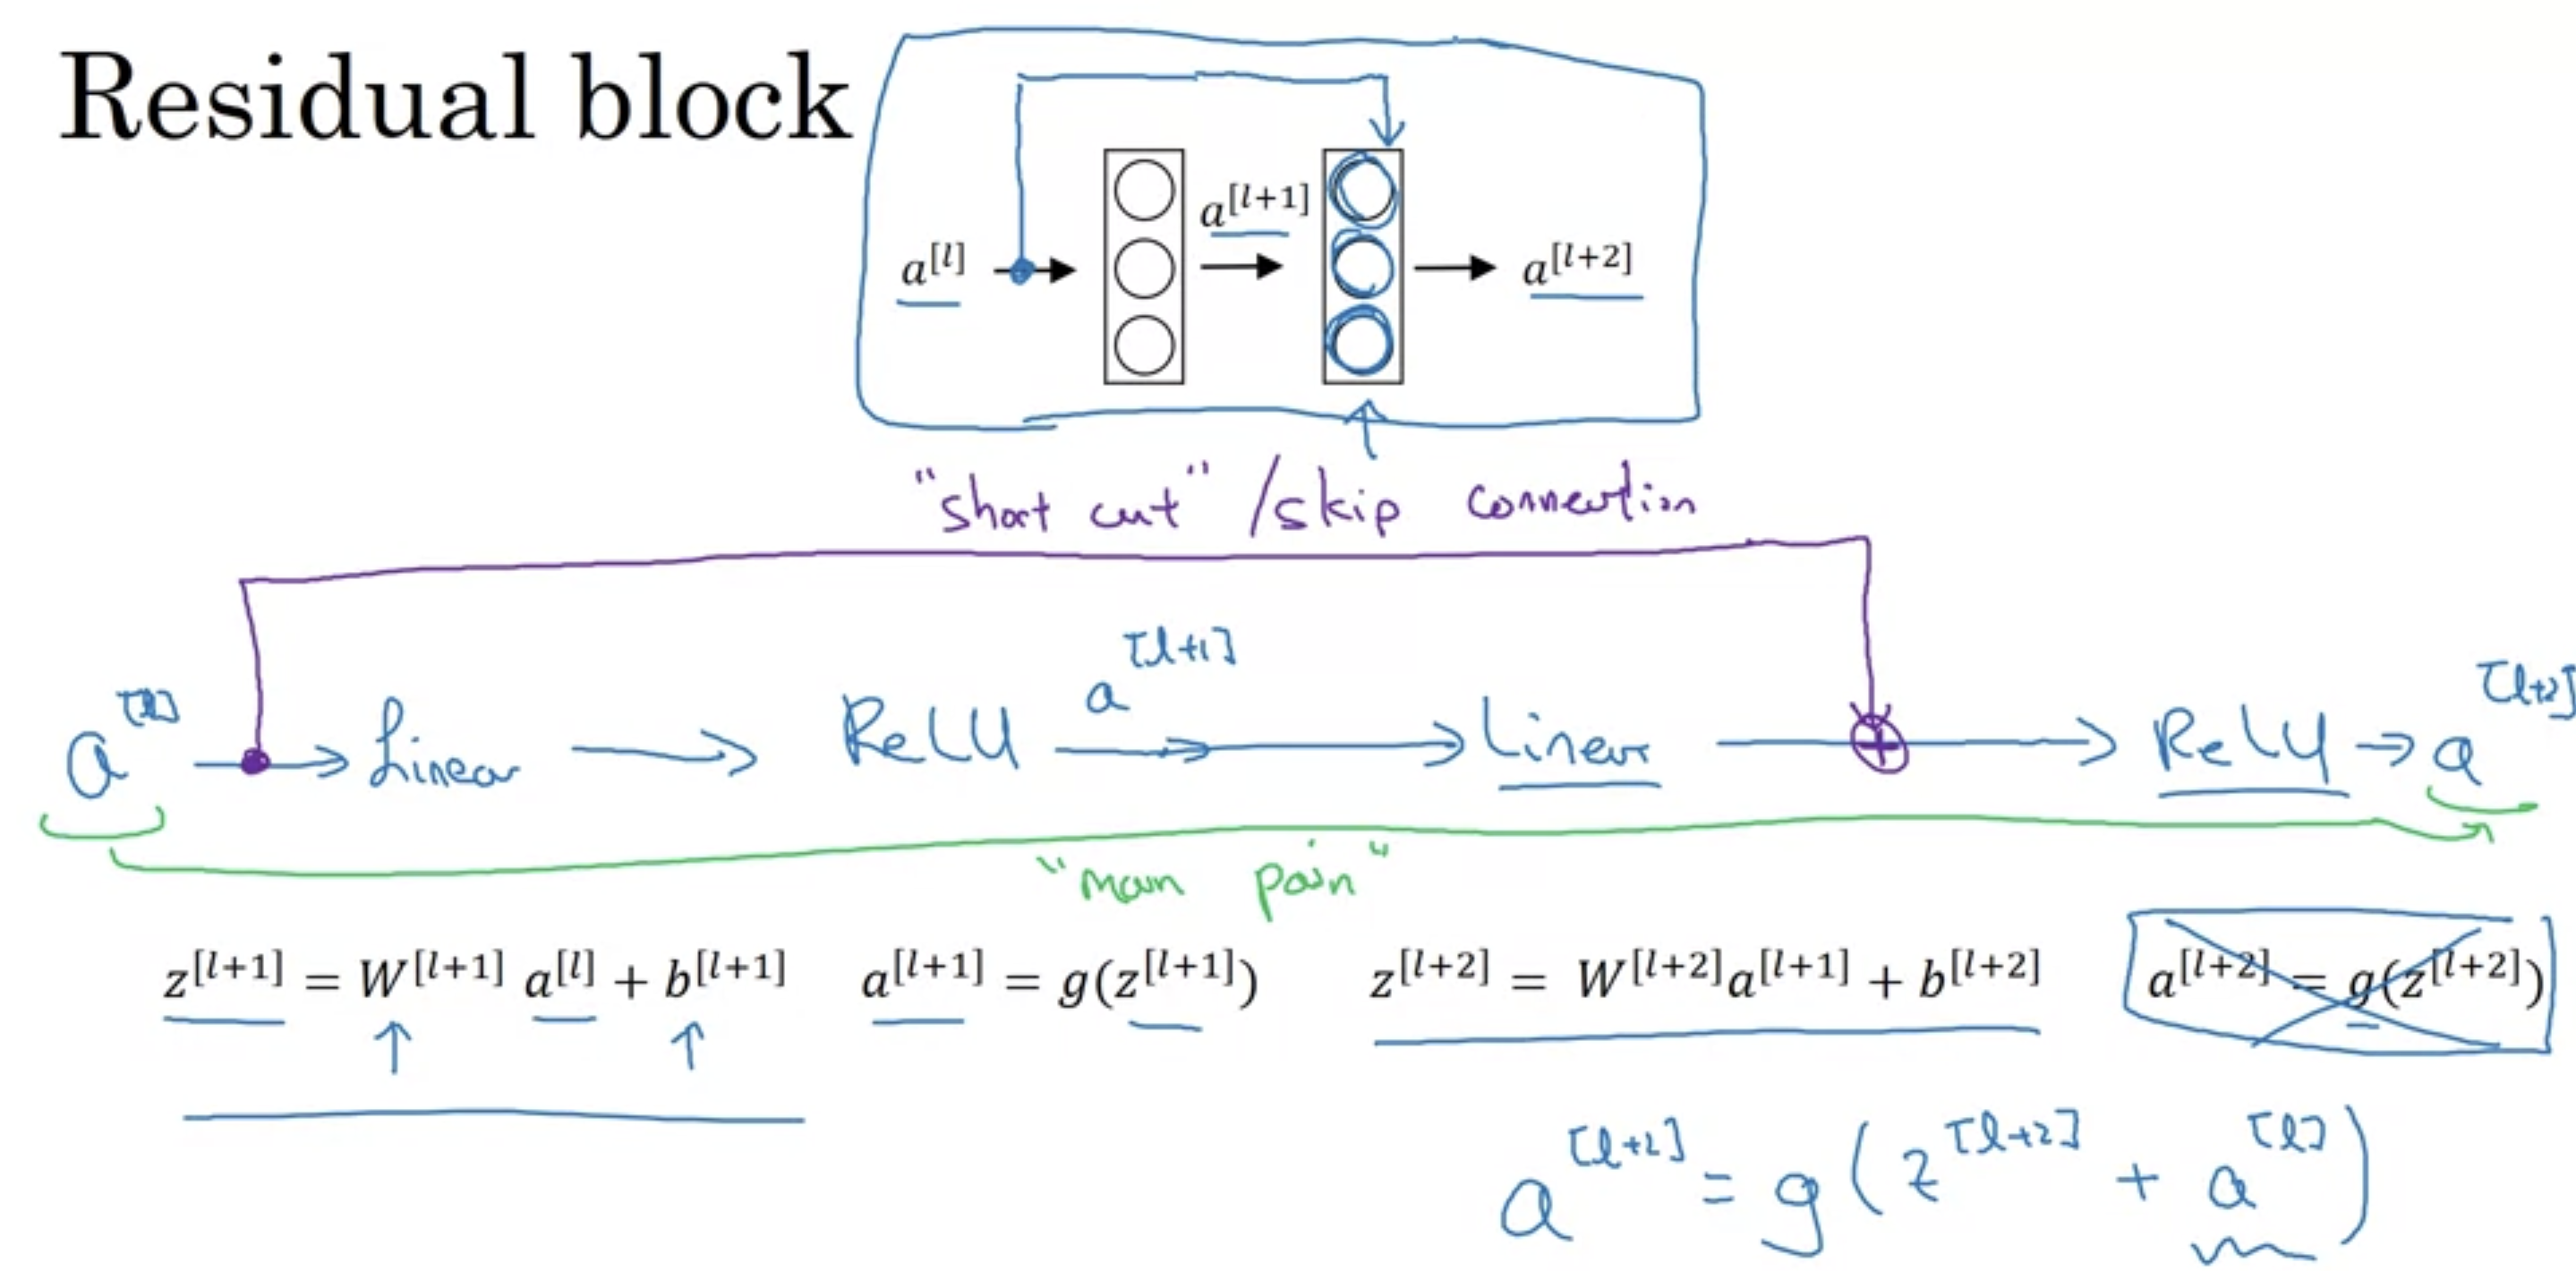 Residual block
a^[l] a^[l+1] a^[l+2]
"short cut" / skip connection
a^[l] → Linear → ReLU a^[l+1] → Linear ⊕ → ReLU → a^[l+2]
"main
z^[l+1] = W^[l+1] a^[l] + b^[l+1] a^[l+1] = g(z^[l+1]) z^[l+2] = W^[l+2]a^[l+1] + b^[l+2] a^[l+2] = g(z^[l+2])
a^[l+2] = g(z^[l+2] + a^[l])